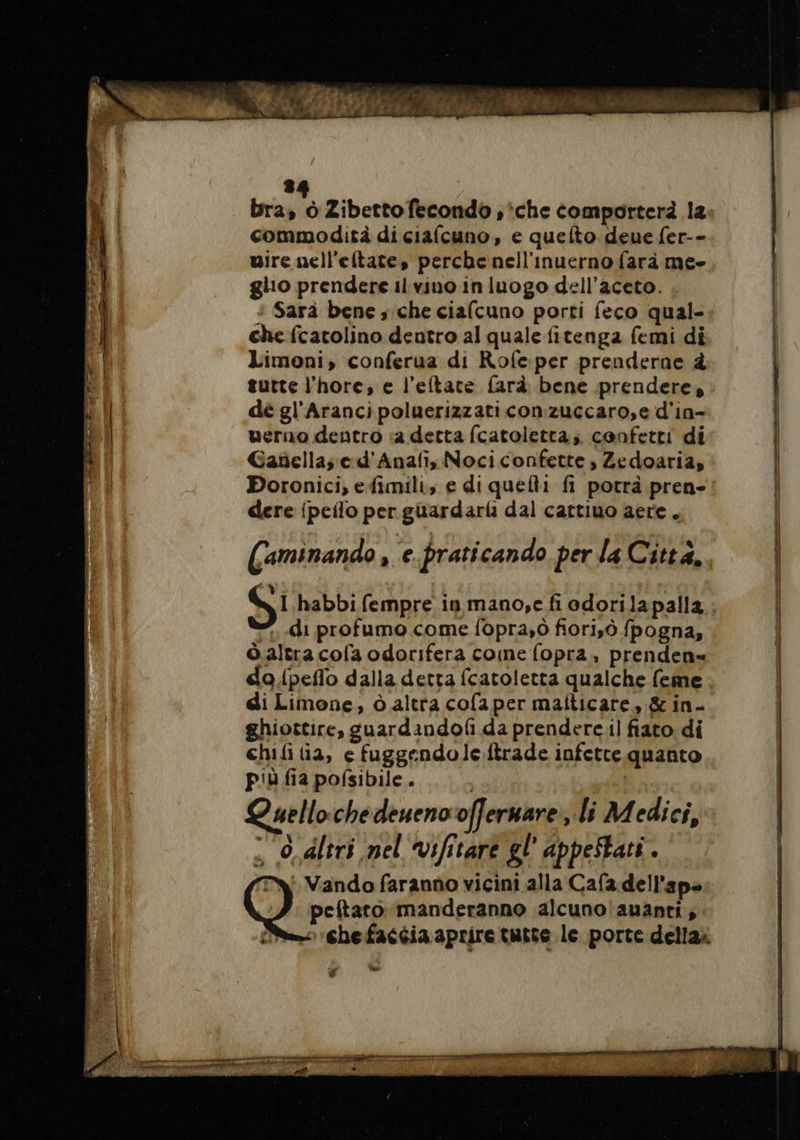 24
bra, ò Zibetto ſecondo, che comporterà la
commodità di ciaſcuno, e queſto deue ſer-
uire nell'eſtate, perche nell'inuerno ſarà me-
glio prendere il vino in luogo dell'aceto.
Sarà bene, che ciaſcuno porti ſeco qual-
che ſcatolino dentro al quale ſi tenga ſemi di
Limoni, conſerua di Roſe per prenderne à
tutte l'hore, e l'eſtate ſarà bene prendere,
de gl'Aranci poluerizzati con zuccaro, e d'in-
uerno dentro a detta ſcatoletta, confetti di
Canella, e d'Anaſi, Noci confette, Zedoaria,
Doronici, e ſimili, e di queſti ſi potrà pren-
dere ſpeſſo per guardarſi dal cattiuo aere.
Caminando, e praticando per la Città.
SI habbi ſempre in mano, e ſi odori la palla
di profumo come ſopra, ò fiori, ò ſpogna,
ò altra coſa odorifera come ſopra, prenden-
do ſpeſſo dalla detta ſcatoletta qualche ſeme
di Limone, ò altra coſa per maſticare, & in-
ghiottire, guardandoſi da prendere il fiato di
chi ſi ſia, e fuggendo le ſtrade infette quanto
più ſia poſsibile.
Quello che deueno oſſeruare, li Medici,
ò altri nel viſitare gl' appeſtati.
QVando faranno vicini alla Caſa dell'ap-
peſtato manderanno alcuno auanti,
che faccia aprire tutte le porte della